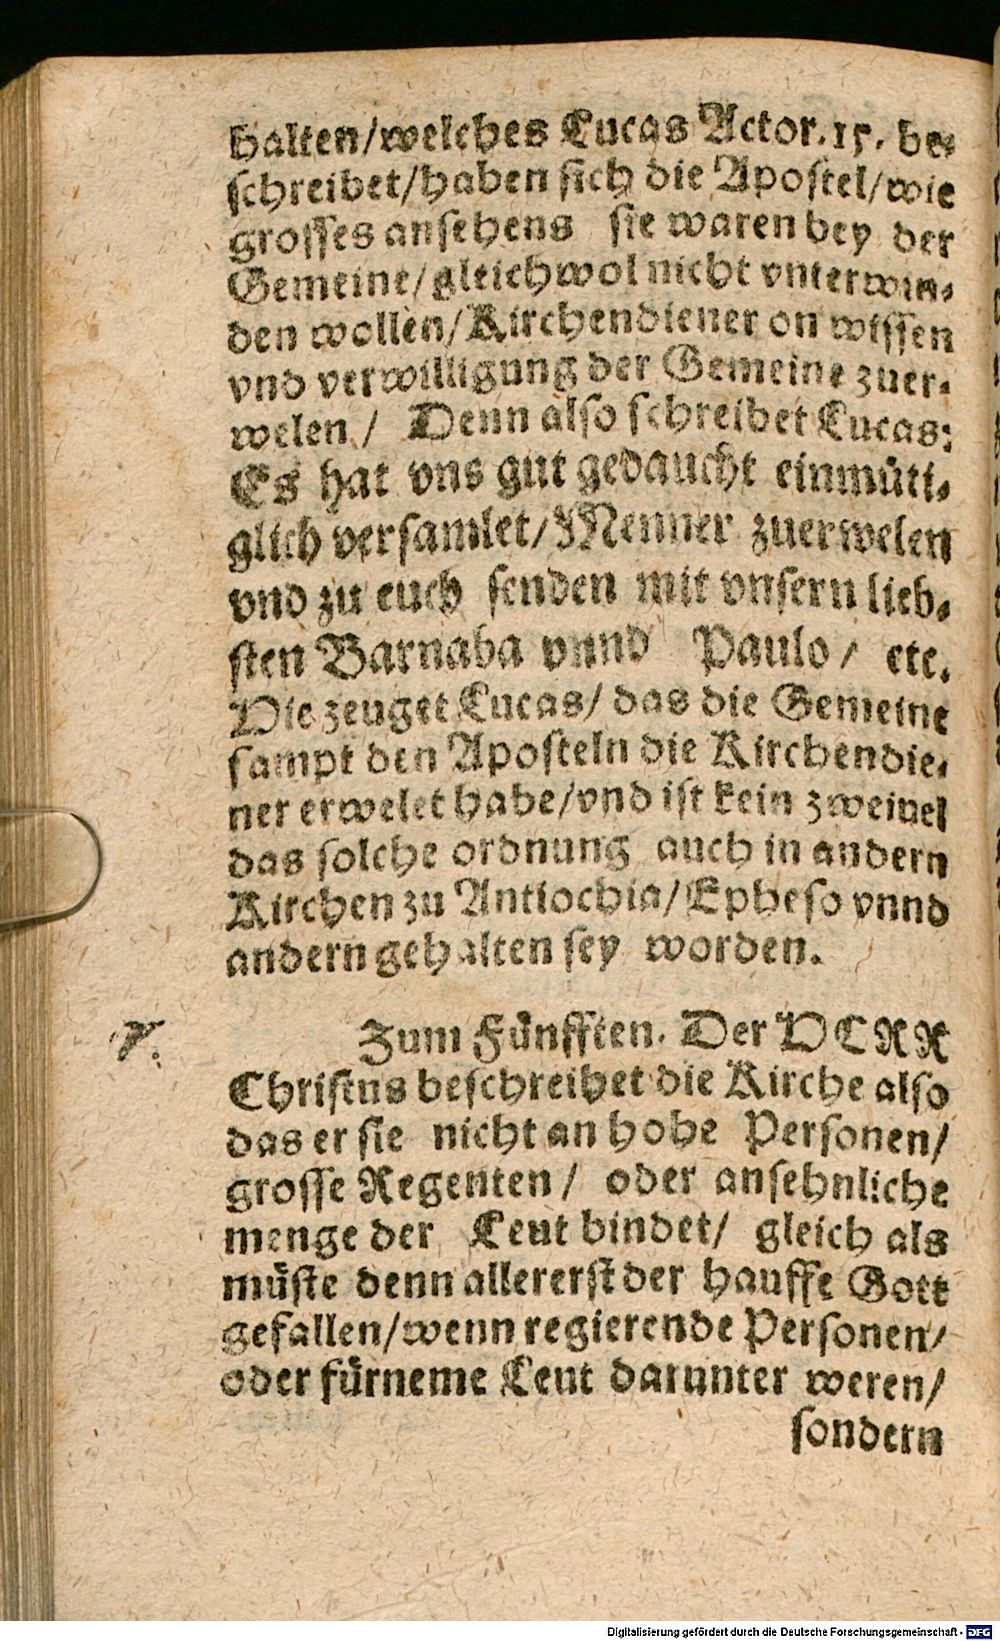 halten/welches Lucas Actor.15. be-
schreibet/haben sich die Apostel/wie
grosses ansehens sie waren bey der
Gemeine/gleichwol nicht vnterwin-
den wollen/Kirchendiener on wissen
vnd verwilligung der Gemeine zuer-
welen/ Denn also schreibet Lucas:
Es hat vns gut gedaucht einmüti-
glich versamlet/Menner zuerwelen
vnd zu euch senden mit vnsern lieb-
sten Barnaba vnnd Paulo/ etc.
Hie zeuget Lucas/ das die Gemeine
sampt den Aposteln die Kirchendie-
ner erwelet habe/vnd ist kein zweiuel
das solche ordnung auch in andern
Kirchen zu Antiochia/Epheso vnnd
andern gehalten sey worden.
V.
Zum Fünfften. Der HERR
Christus beschreibet die Kirche also
das er sie nicht an hohe Personen/
grosse Regenten/ oder ansehnliche
menge der Leut bindet/ gleich als
müste denn allererst der hauffe Gott
gefallen/wenn regierende Personen/
oder fürneme Leut darunter weren/
sondern
Digitalisierung gefördert durch die Deutsche Forschungsgemeinschaft - DFG